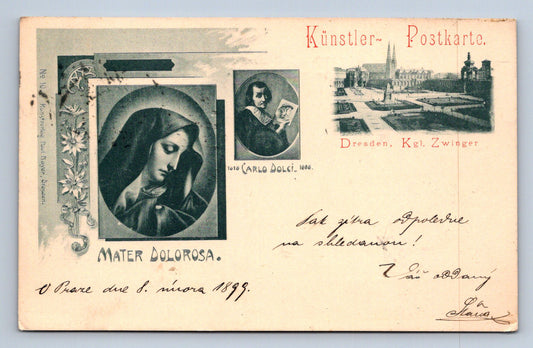 Künstler- Postkarte.
Dresden, Kgl. Zwinger
1616 CARLO DOLCI. 1686.
MATER DOLOROSA.
Jak zítra odpoledne
na shledanou!
Váš oddaný
V Praze dne 8. února 1899.